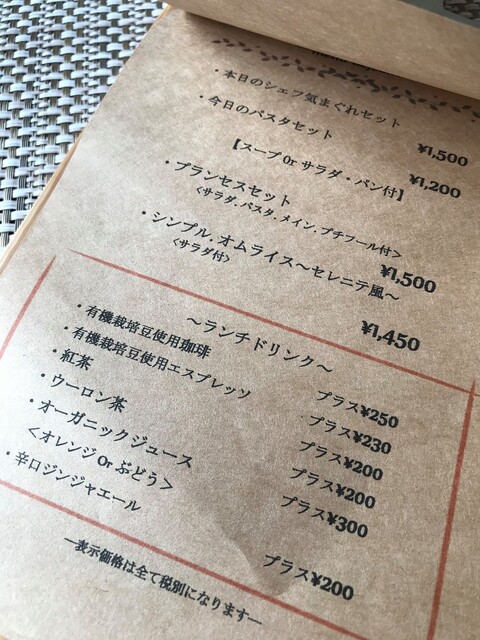 ・本日のシェフ気まぐれセット
¥1,500
・今日のパスタセット
¥1,200
【スープ Or サラダ・パン付】
・プランセスセット
<サラダ.パスタ.メイン.プチフール付>
¥1,500
・シンプル.オムライス～セレニテ風～
<サラダ付>
¥1,450
～ランチドリンク～
・有機栽培豆使用珈琲 プラス¥250
・有機栽培豆使用エスプレッソ プラス¥230
・紅茶 プラス¥200
・ウーロン茶 プラス¥200
・オーガニックジュース プラス¥300
<オレンジ Or ぶどう>
・辛口ジンジャエール プラス¥200
―表示価格は全て税別になります―